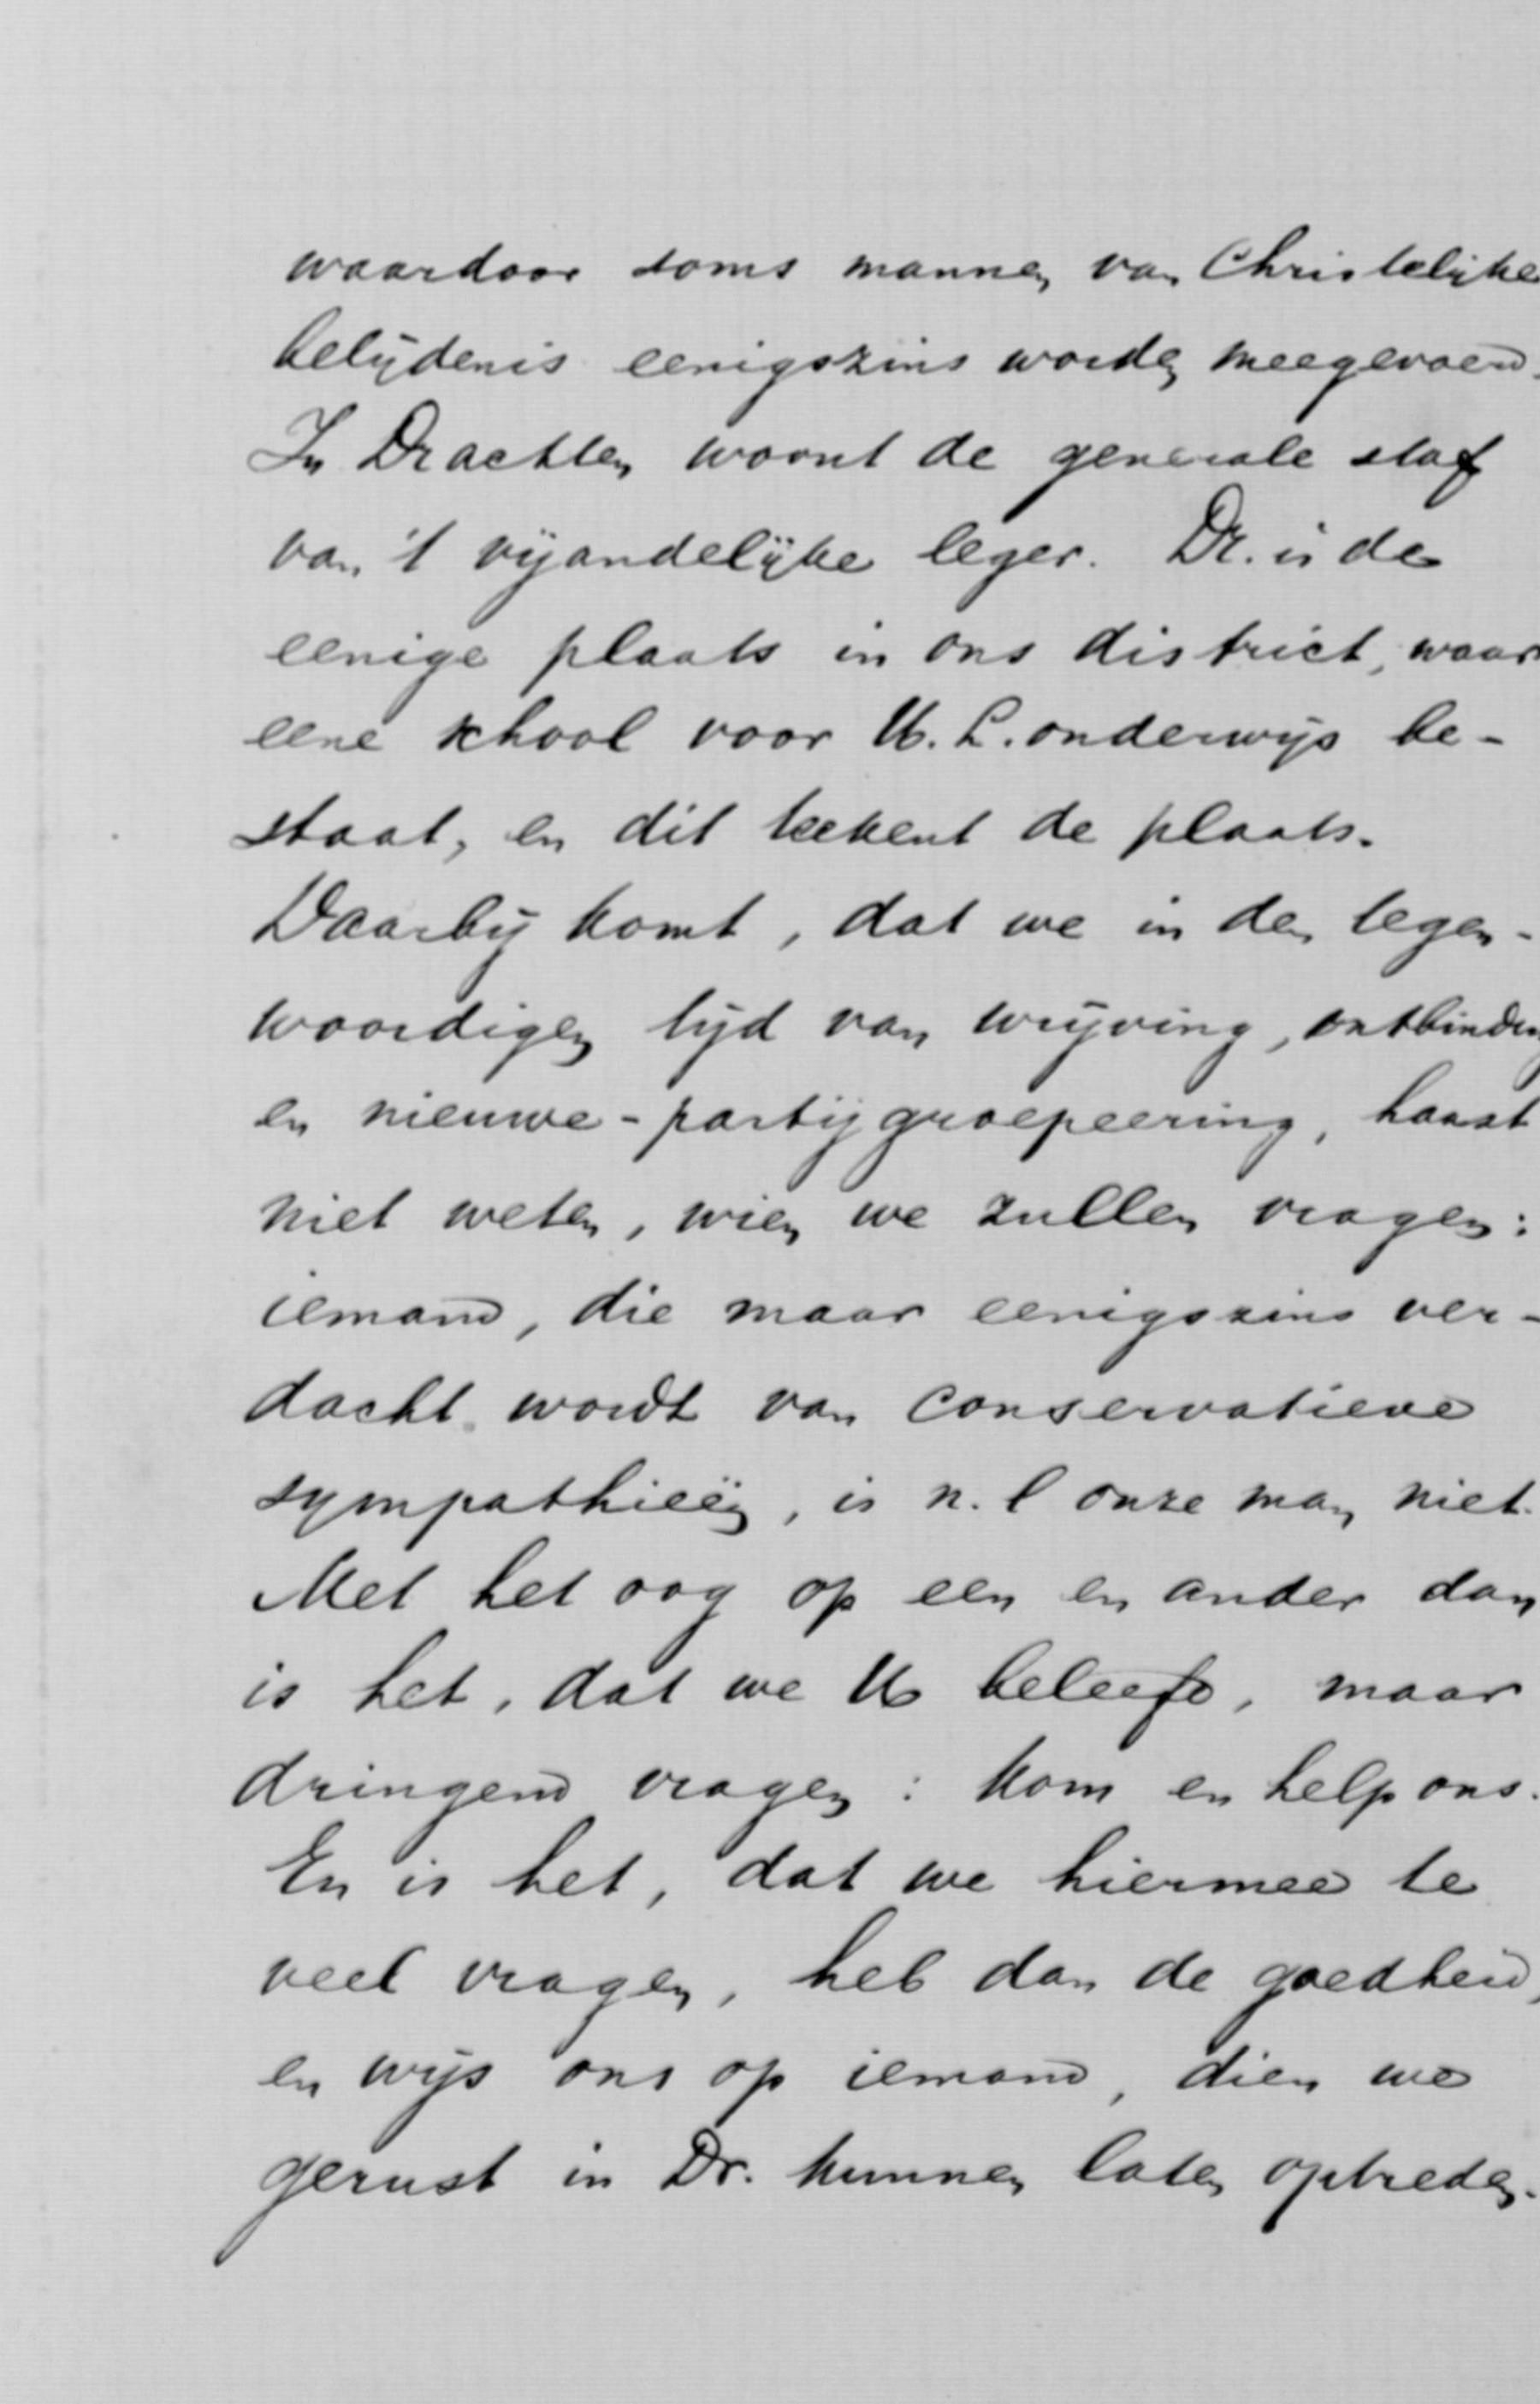 waardoor soms mannen van Christelijke
belijdenis eenigszins worden meegevoerd.
In Drachten woont de generale staf
van 't vijandelijke leger. Dr. is de
eenige plaats in ons district, waar
eene school voor U. L. onderwijs be-
staat, en dit teekent de plaats.
Daarbij komt, dat we in den tegen-
woordigen tijd van wrijving, ontbinding
en nieuwe-partijgroepeering, haast
niet weten, wien we zullen vragen:
iemand, die maar eenigszins ver-
dacht wordt van conservatieve
sympathieën, is n. l onze man niet.
Met het oog op een en ander dan
is het, dat we U beleefd, maar
dringend vragen: kom en help ons.
En is het, dat we hiermee te
veel vragen, heb dan de goedheid,
en wijs ons op iemand, dien we
gerust in Dr. kunnen laten optreden.